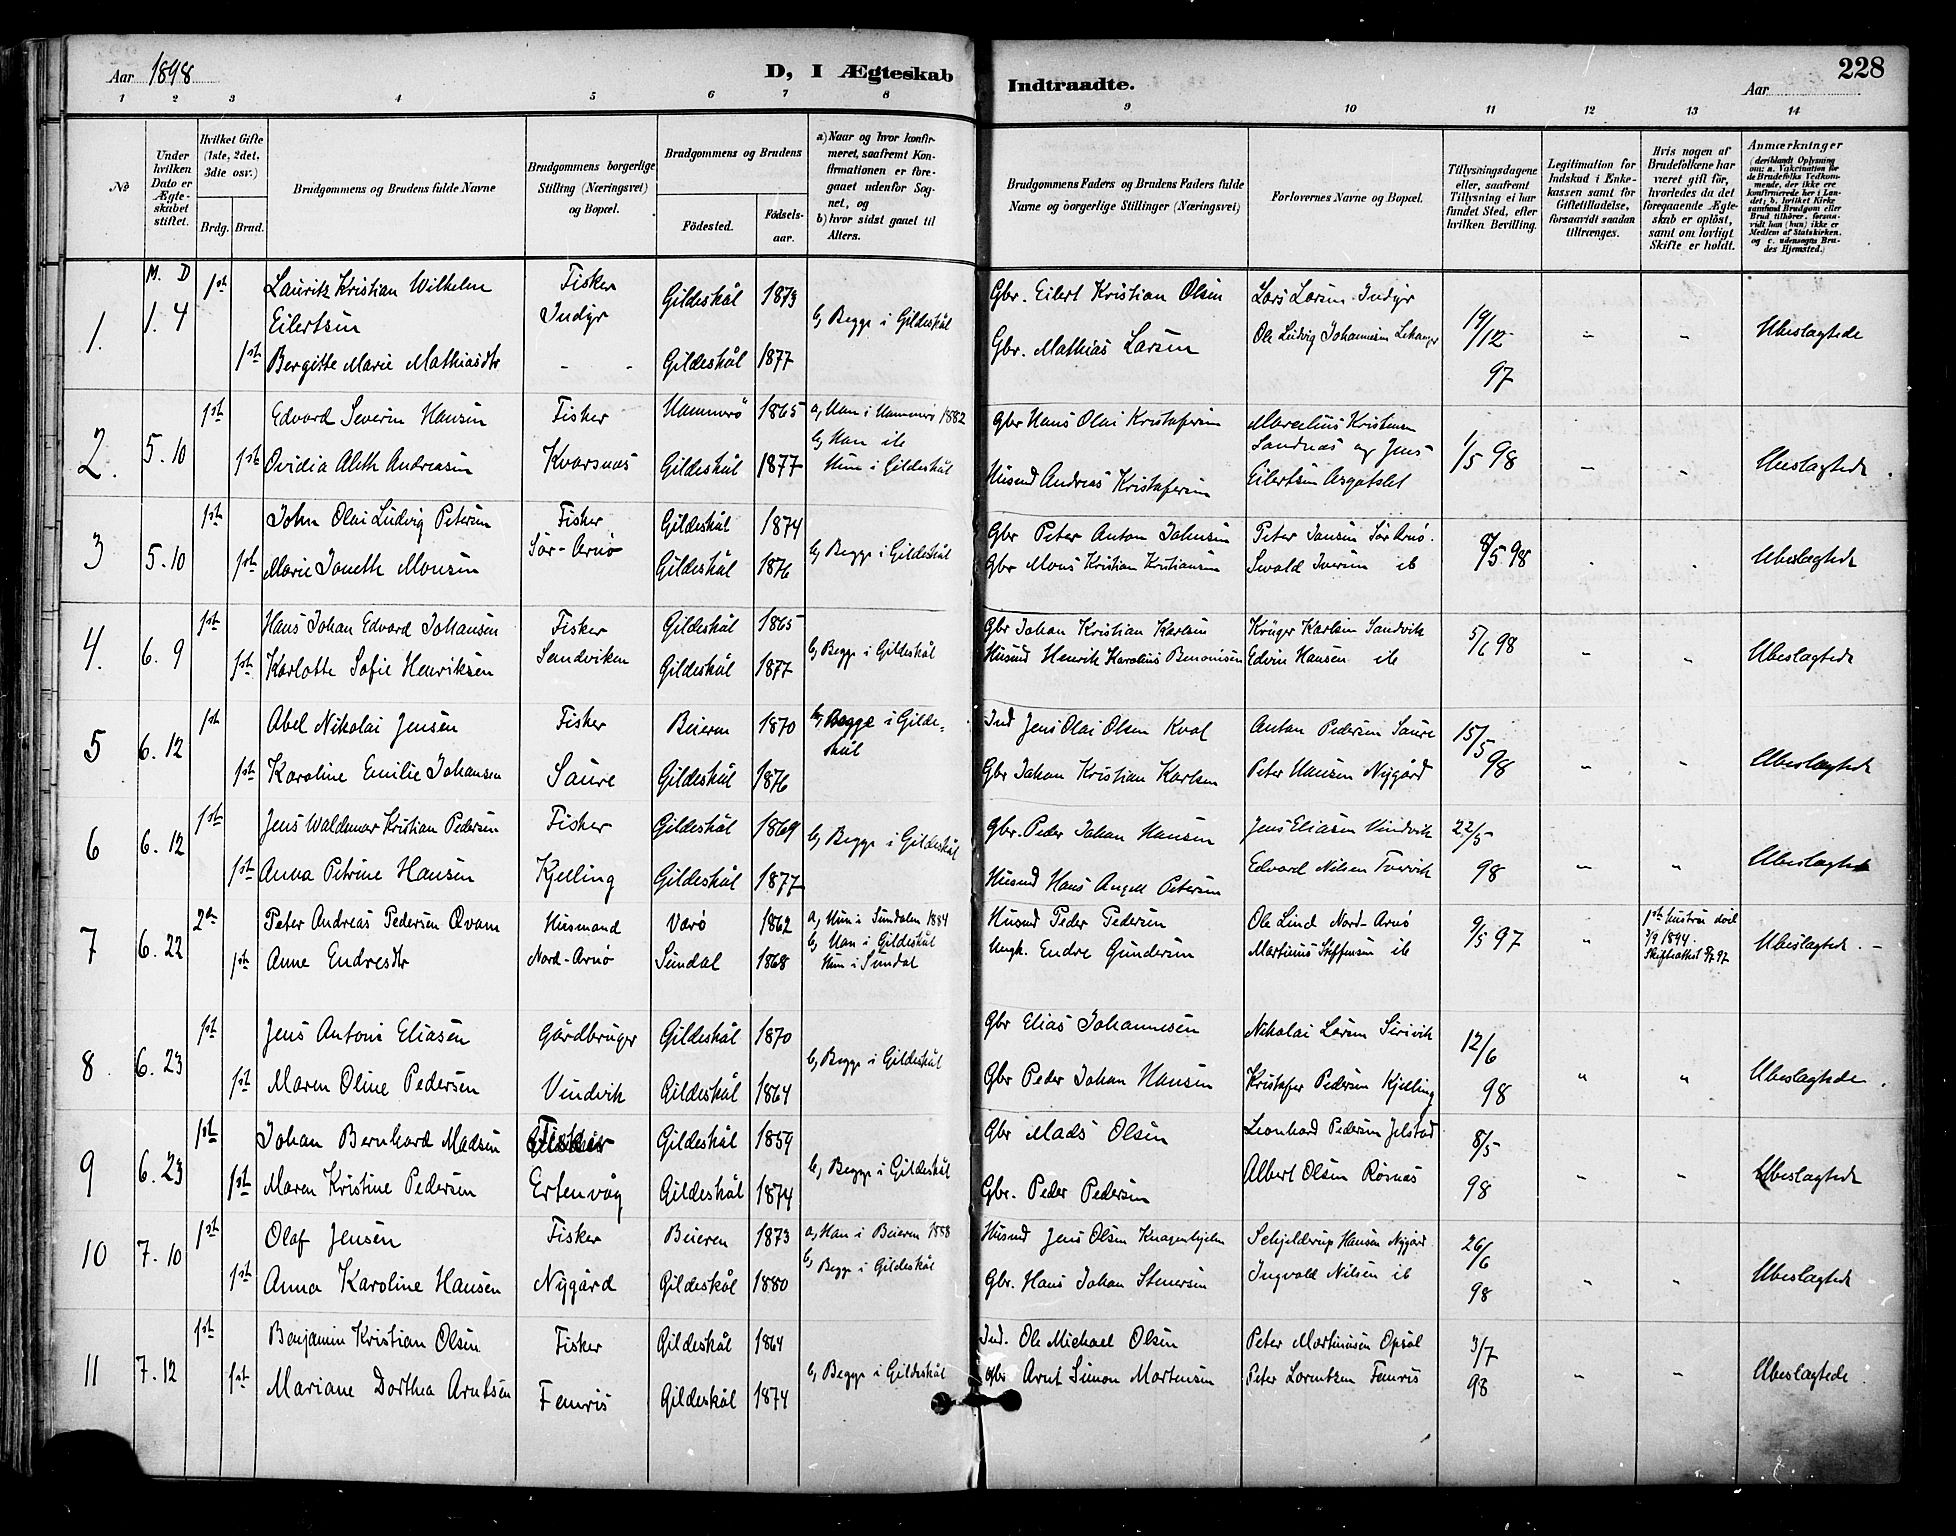 Aar 1898
D, I Ægteskab
Indtraadte.
Aar
228
1 2 3 4 5 6 7 8 9 10 11 12 13 14
No
Under hvilken Dato er Ægteskabet stiftet.
Hvilket Gifte (1ste, 2det, 3die osv.)
Brdg. Brud.
Brudgommens og Brudens fulde Navne
Brudgommens borgerlige Stilling (Næringsvei) og Bopæl.
Brudgommens og Brudens
Födested.
Födselsaar.
a) Naar og hvor konfirmeret, saafremt Konfirmationen er foregaaet udenfor Sognet, og
b) hvor sidst gaaet til Alters.
Brudgommens Faders og Brudens Faders fulde Navne og borgerlige Stillinger (Næringsvei)
Forlovernes Navne og Bopæl.
Tillysningsdagene eller, saafremt Tillysning ei har fundet Sted, efter hvilken Bevilling.
Legitimation for Indskud i Enkekassen samt for Giftetilladelse, forsaavidt saadan tiltrænges.
Hvis nogen af Brudefolkene har været gift för, hvorledes da det foregaaende Ægteskab er oplöst, samt om lovligt Skifte er holdt.
Anmærkninger (deriblandt Oplysning om: a. Vakcination for de Brudefolks Vedkommende, der ikke ere konfirmerede her i Landet; b. hvilket Kirkesamfund Brudgom eller Brud tilhörer, forsaavidt han (hun) ikke er Medlem af Statskirken, og c. udensogns Brudes Hjemsted.)
M. D
1. 1. 4 1st Lauritz Kristian Wilhelm Fisker Gildeskål 1873 Gbr. Eilert Kristian Olsen Lars Larsen Indyr 19/12
Eilertsen Indyr b, Begge i Gildeskål Ubeslagtede
1st Bergitte Marie Mathiasdtr - - Gildeskål 1877 Gbr. Mathias Larsen Ole Ludvig Johannesen 97
2. 5. 10 1st Edvard Severin Hansen Fisker Hammerö 1865 a, Han i Hammerö 1882 Gbr Hans Olai Kristofersen Marselius Kristensen
b, Han ib Sandnæs og Jens 1/5 98 Ubeslagtede
1st Ovidia Aleth Andreasen Kvarsnæs Gildeskål 1877 Hun i Gildeskål Husmd Andreas Kristofersen Eilertsen
3 5. 10 1st John Olai Ludvig Petersen Fisker Gildeskål 1874 Gbr Peter Anton Johnsen Peter Jansen Sör Arnö. 8/5 98
1st Marie Joneth Monsen Sör-Arnö Gildeskål 1876 b, Begge i Gildeskål Gbr Mons Kristian Kristiansen Sevald Iversen ib Ubeslagtede
4. 6. 9 1st Hans Johan Edvard Johansen Fisker Gildeskål 1865 Gbr Johan Kristian Karlsen Krüger Karlsen Sandvik 5/6 98
1st Karlotte Sofie Henriksen Sandviken Gildeskål 1877 b, Begge i Gildeskål Husmd Henrik Karolius Benonisen Edvin Hansen ib Ubeslagtede
5 6. 12 1st Abel Nikolai Jensen Fisker Beieren 1870 b, Begge i Gildeskål Ind Jens Olai Olsen Kval Anton Pedersen Saure 15/5
1st Karoline Emilie Johansen Saure Gildeskål 1876 Gbr Johan Kristian Karlsen Peter Hansen Nygård 98 Ubeslagtede
6 6. 12 1st Jens Waldemar Kristian Pedersen Fisker Gildeskål 1869 b, Begge i Gildeskål Gbr. Peder Johan Hansen Jens Eliasen Vindvik 22/5
1st Anna Petrine Hansen Kjelling Gildeskål 1877 Husmd Hans Angell Petersen Edvard Nilsen 98 Ubeslagtede
7 6. 22 2den Peter Andreas Pedersen Qvam Husmand Værö 1862 a, Hun i Sundalen 1884 Husmd Peder Pedersen Ole Lind Nord-Arnö 9/5 97 1ste hustru död
b, Han i Gildeskål 3/9 1894.
1st Anne Endresdtr Nord-Arnö Sundal 1868 Hun i Sundal Ungk. Endre Gundersen Martinus Steffensen ib Skifteattest 97 Ubeslagtede
8 6. 23 1st Jens Antoni Eliasen Gårdbruger Gildeskål 1870 Gbr Elias Johannesen Nikolai Larsen 12/6
1st Maren Oline Pedersen Vindvik Gildeskål 1864 b, Begge i Gildeskål Gbr Peder Johan Hansen Kristofer Pedersen Kjelling 98 Ubeslagtede
9 6. 23 1st Johan Bernhard Madsen Fisker Gildeskål 1859 Gbr Mads Olsen Leonhard Pedersen Jelstad 8/5
1st Maren Kristine Pedersen Ertenvåg Gildeskål 1874 b, Begge i Gildeskål Gbr. Peder Pedersen Albert Olsen Rösnæs 98 Ubeslagtede
10 7. 10 1st Olaf Jensen Fisker Beieren 1873 a, Han i Beieren 1888 Husmd Jens Olsen Schjelderup Hansen Nygård 26/6
1st Anna Karoline Hansen Nygård Gildeskål 1880 b, Begge i Gildeskål Gbr. Hans Johan Stenersen Ingvald Nilsen ib 98 Ubeslagtede
11 7. 12 1st Benjamin Kristian Olsen Fisker Gildeskål 1864 Ind. Ole Michael Olsen Peter Martinusen Opsal 3/7
1st Mariane Dorthea Arntsen Femris Gildeskål 1874 b, Begge i Gildeskål Gbr Arnt Simon Mortensen Peter Lorentsen Femris 98 Ubeslagtede